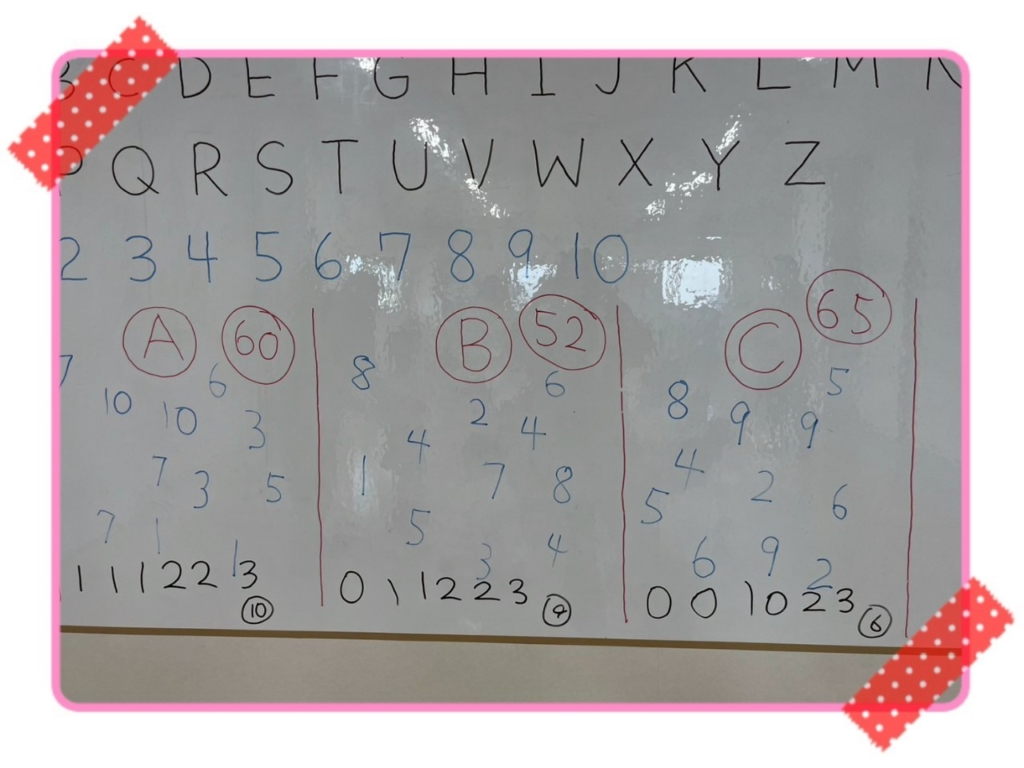 B C D E F G H I J K L M N
P Q R S T U V W X Y Z
2 3 4 5 6 7 8 9 10
A 60
7 6
10 10 3
7 3 5
7 1 1
1 1 1 2 2 3
10
B 52
8 6
2
4 4
1 7 8
5 3 4
0 1 1 2 2 3
9
C 65
8 5
9 9
4 2
5 6
6 9 2
0 0 1 0 2 3
6